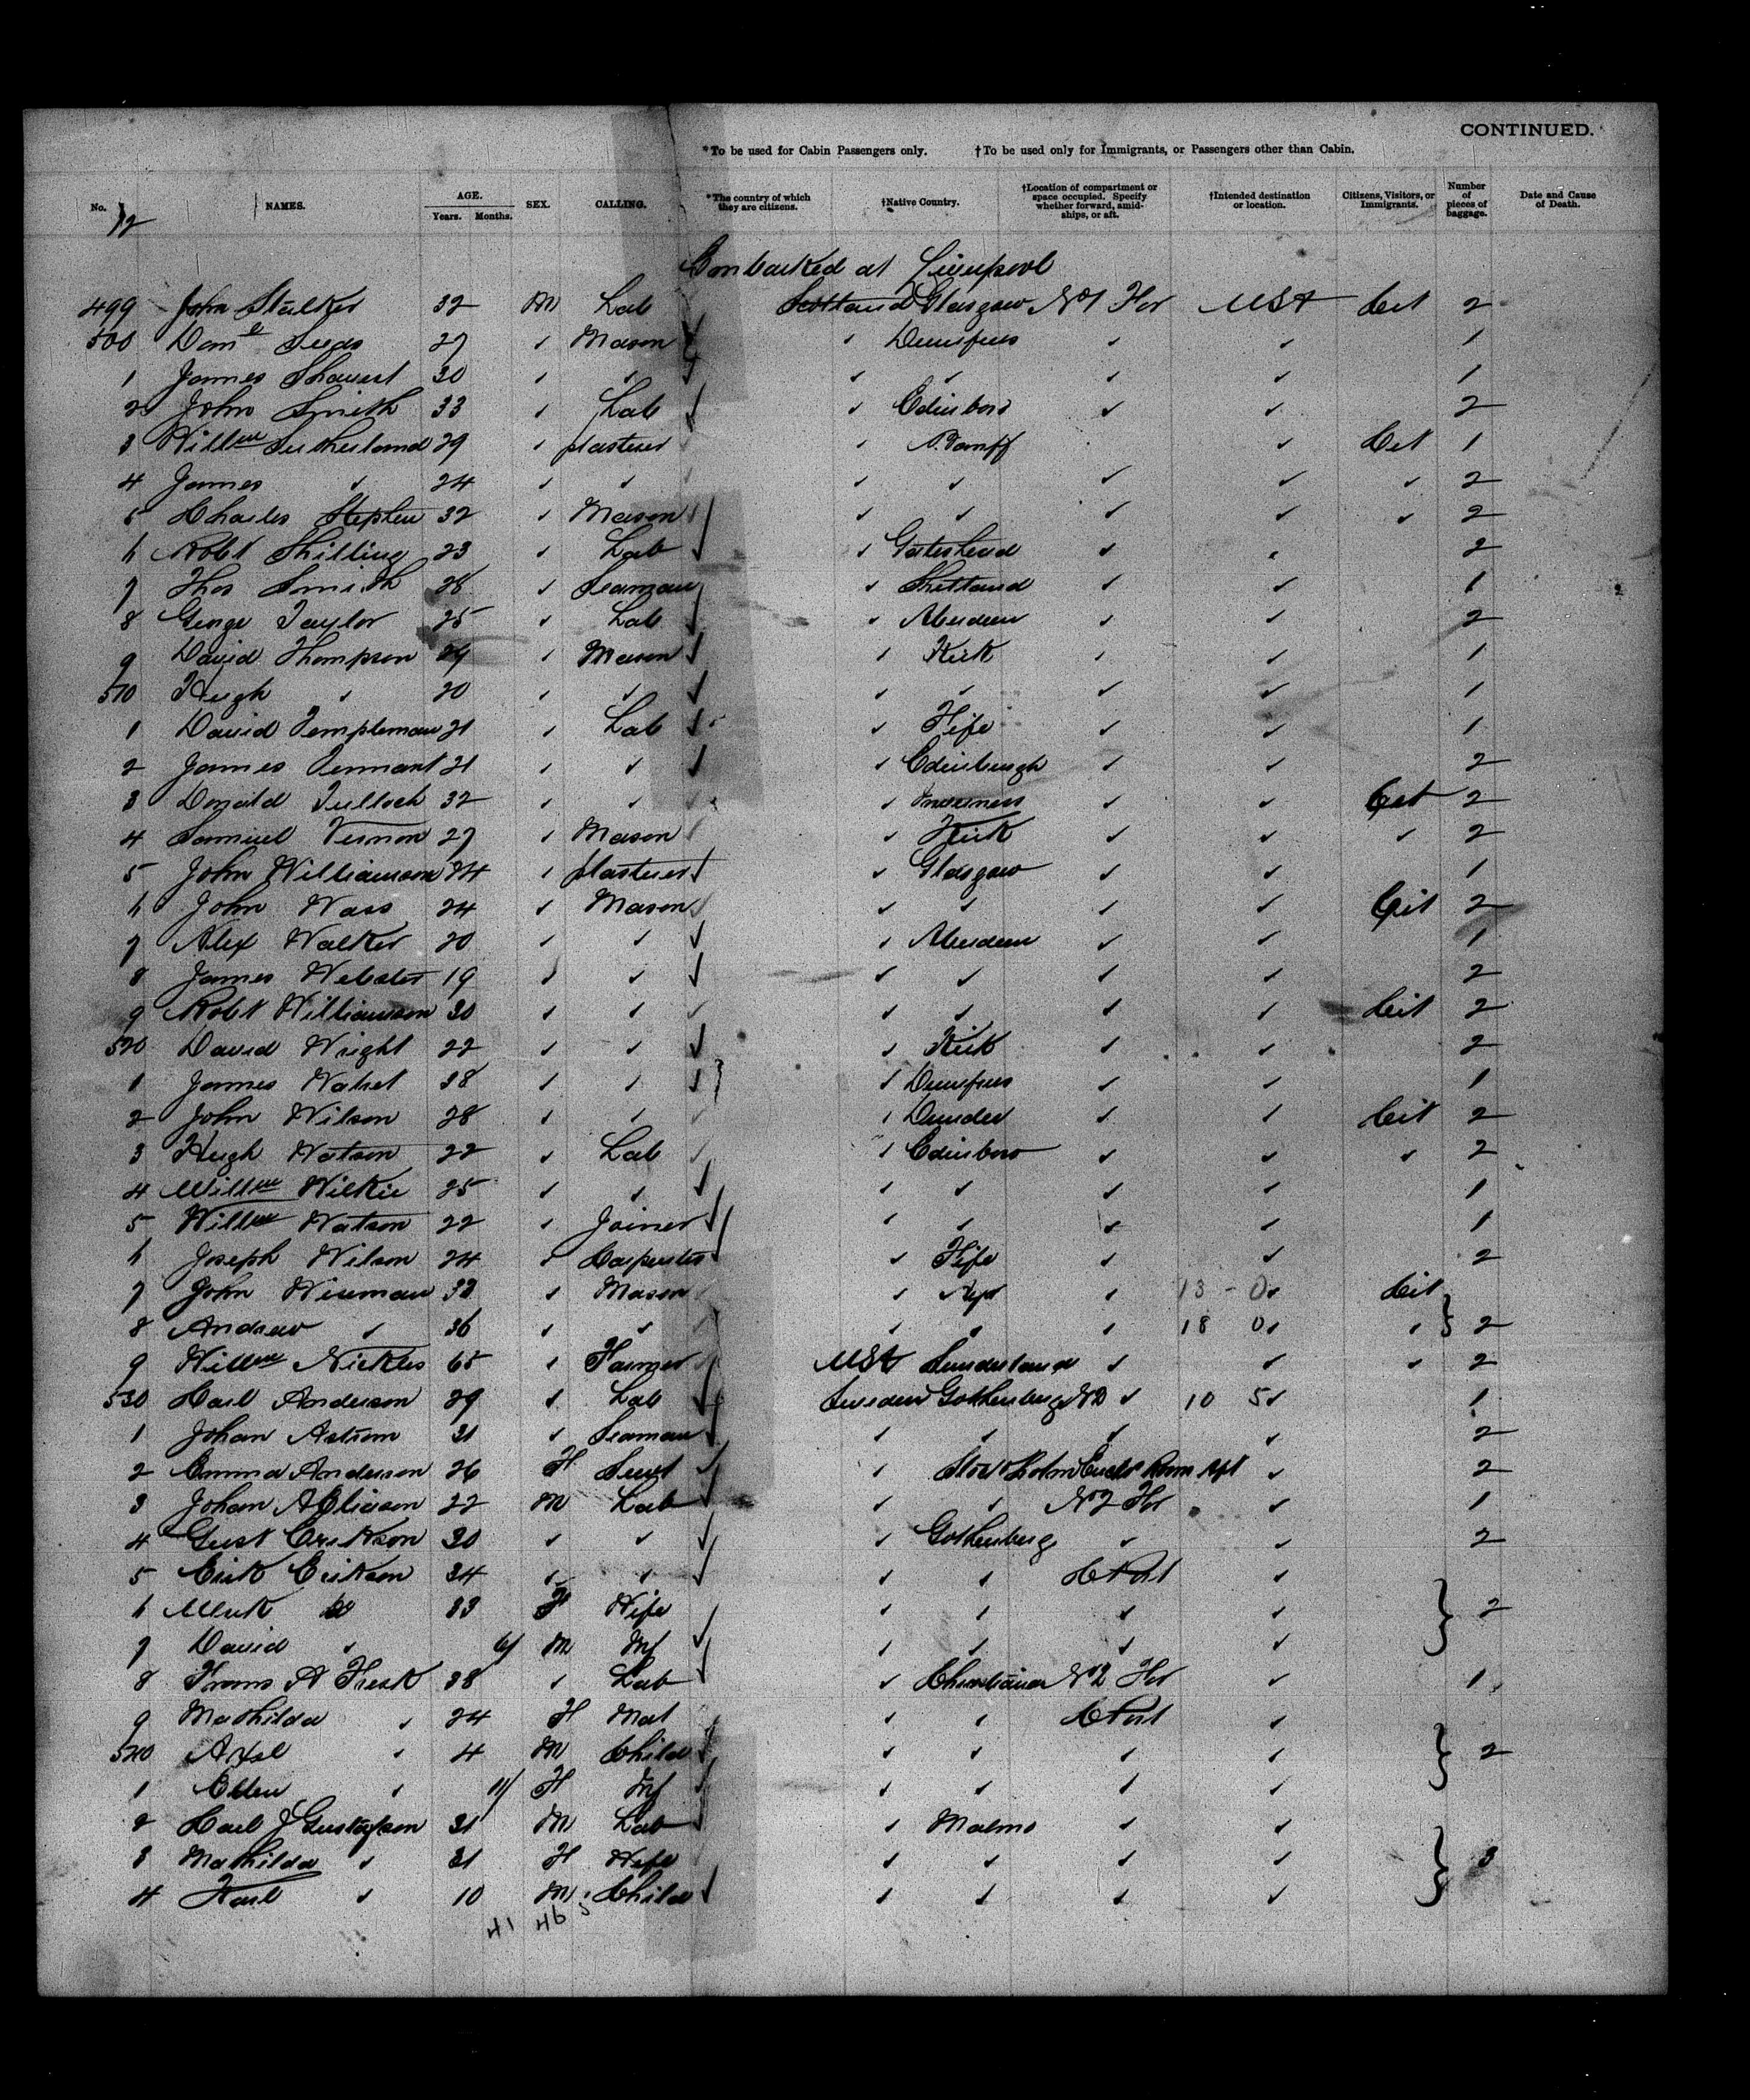 CONTINUED.
*To be used for Cabin Passengers only. †To be used only for Immigrants, or Passengers other than Cabin.
No. NAMES. AGE. Years. Months. SEX. CALLING. *The country of which they are citizens. †Native Country. †Location of compartment or space occupied. Specify whether forward, amid-ships, or aft. †Intended destination or location. Citizens, Visitors, or Immigrants. Number of pieces of baggage. Date and Cause of Death.
12
Embarked at Liverpool
499 John Stalker 32 M Lab Scotland Glasgow No 1 For USA Cit 2
500 27 ✓ Mason ✓ Dumfries ✓ ✓ 1
1 James 30 ✓ ✓ ✓ ✓ ✓ ✓ 1
2 John Smith 33 ✓ Lab ✓ Edinboro ✓ ✓ 2
3 Willm Sutherland 29 ✓ plasterer ✓ Banff ✓ Cit 1
4 James ✓ 24 ✓ ✓ ✓ ✓ ✓ ✓ ✓ 2
5 Charles Stephen 32 ✓ Mason ✓ ✓ ✓ ✓ ✓ 2
6 Robt Shilling 23 ✓ Lab ✓ Gateshead ✓ ✓ 2
7 Thos Smith 28 ✓ Seaman ✓ Shetland ✓ ✓ 1
8 George Taylor 25 ✓ Lab ✓ Aberdeen ✓ ✓ 2
9 David Thompson 29 ✓ Mason ✓ Kirk ✓ ✓ 1
510 Hugh ✓ 20 ✓ ✓ ✓ ✓ ✓ ✓ 1
1 David Templeman 21 ✓ Lab ✓ Fife ✓ ✓ 1
2 James Tennant 21 ✓ ✓ ✓ Edinburgh ✓ ✓ 2
3 Donald Tulloch 32 ✓ ✓ ✓ Inverness ✓ ✓ Cit 2
4 Samuel Vernon 27 ✓ Mason ✓ Kirk ✓ ✓ ✓ 2
5 John Williamson 24 ✓ plasterer ✓ Glasgow ✓ ✓ 1
6 John Wass 24 ✓ Mason ✓ ✓ ✓ ✓ Cit 2
7 Alex Walker 20 ✓ ✓ ✓ Aberdeen ✓ ✓ 1
8 James Webster 19 ✓ ✓ ✓ ✓ ✓ ✓ 2
9 Robt Williamson 30 ✓ ✓ ✓ ✓ ✓ ✓ Cit 2
520 David Wright 22 ✓ ✓ ✓ Kirk ✓ ✓ 2
1 James 38 ✓ ✓ ✓ Dumfries ✓ ✓ 1
2 John Wilson 28 ✓ ✓ ✓ Dundee ✓ ✓ Cit 2
3 Hugh Watson 22 ✓ Lab ✓ Edinboro ✓ ✓ ✓ 2
4 Willm Wilkie 25 ✓ ✓ ✓ ✓ ✓ ✓ 1
5 Willm Watson 22 ✓ Joiner ✓ ✓ ✓ ✓ 1
6 Joseph Wilson 24 ✓ Carpenter ✓ Fife ✓ ✓ 2
7 John 33 ✓ Mason ✓ Ayr ✓ 13 - 0 ✓ Cit
8 Andrew ✓ 36 ✓ ✓ ✓ ✓ ✓ 18 0 ✓ ✓ } 2
9 Willm Nickles 65 ✓ Farmer USA Sunderland ✓ ✓ ✓ 2
530 Carl Anderson 29 ✓ Lab Sweden Gothenberg No 2 ✓ 10 5 ✓ 1
1 Johan Astrom 31 ✓ Seaman ✓ ✓ ✓ ✓ 2
2 Emma Anderson 26 F Servt ✓ Stockholm Room Aft ✓ 2
3 Johan A 22 M Lab ✓ ✓ No 2 For ✓ 1
4 Gust Erikson 30 ✓ ✓ ✓ Gothenberg ✓ ✓ 2
5 Erik Erikson 34 ✓ ✓ ✓ ✓ ✓
6 33 F Wife ✓ ✓ ✓ ✓ } 2
7 David ✓ 6/ M Inf ✓ ✓ ✓ ✓
8 Frans A Fresk 38 ✓ Lab ✓ Christiania No 2 For ✓ 1
9 Mathilda ✓ 24 F Mat ✓ ✓ ✓
540 Axel ✓ 4 M Child ✓ ✓ ✓ ✓ } 2
1 Ellen ✓ 11/ F Inf ✓ ✓ ✓ ✓
2 Carl J Gustafson 31 M Lab ✓ Malmo ✓ ✓
3 Mathilda ✓ 31 F Wife ✓ ✓ ✓ ✓ } 3
4 Karl ✓ 10 M Child ✓ ✓ ✓ ✓
41 46 5